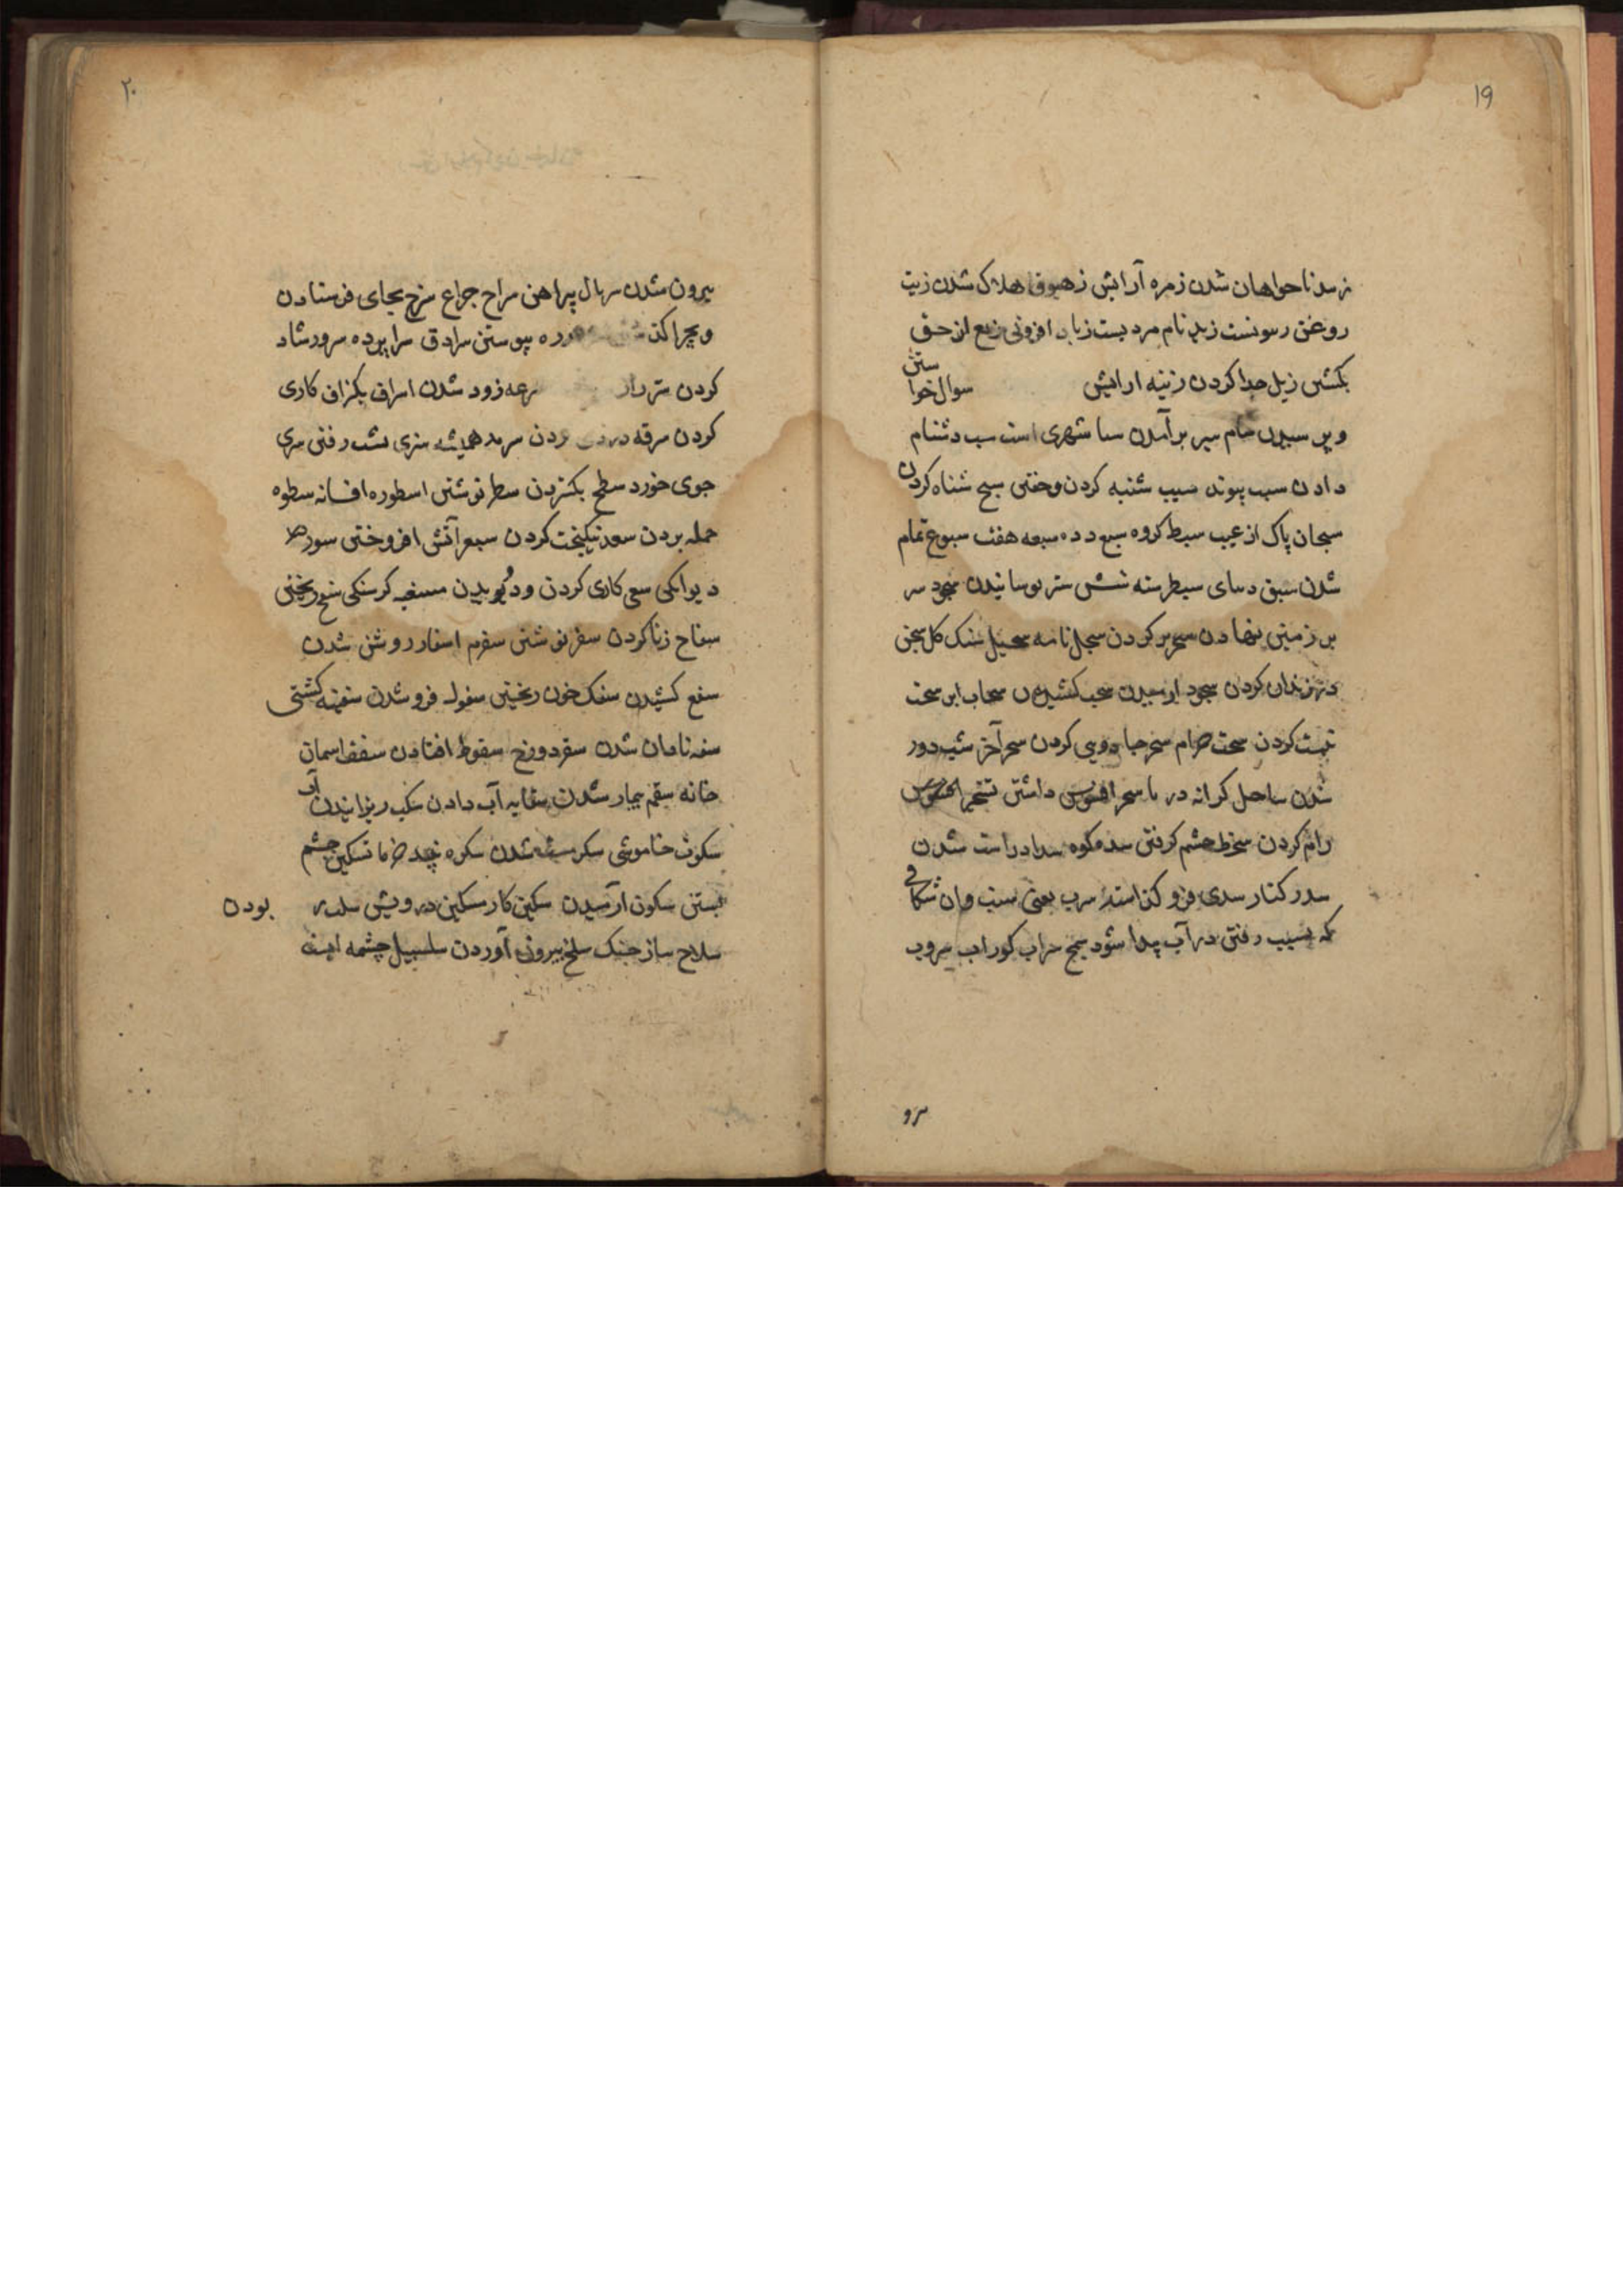 ۱۹
زهد ناخواهان شدن زهره آرایش زهوق هلاک شدن زیت
روغن زیتونست زید نام مردیست زیاده افزونی زیغ از حق
بکشتن زیل جدا کردن زینه ارایش سوال خواستن
و پرسیدن سام سیر برآمدن سبا شهری است سب دشنام
دادن سبب پیوند سبت شنبه کردن و خفتن سبح شناه کردن
سبحان پاک از عیب سبط کروه سبع دده سبعه هفت سبوغ تمام
شدن سبق سیطر سته شش ستر پوسانیدن سجود سر
بر زمین نهادن سجر پر کردن سجل نامه سجیل سنک کل سجن
در زندان کردن سجود ارمیدن سحب کشیدن سحاب ابر سحت
نیست کردن سحت حرام سحر جادویی کردن سحر آخر شب دور
شدن ساحل کرانه دریا سخر افسوس داشتن تسخیر
رام کردن سخط خشم کرفتن سد کوه سداد راست شدن
سدر کنار سدی فرو کذاشته سرب یعنی سبت وان شکافی
که بسبب رفتن در آب پیدا شود سراب کوراب سروب
سرو
۲۰
بیرون شدن سربال پیراهن سراج چراغ سرح بجای فرستادن
و بچرا کذ پیوستن سرادق سراپرده سرور شاد
کردن سرعه زود شدن اسراف بکزاف کاری
کردن سرقه دزدی کردن سرمد همیشه سری بشب رفتن سری
جوی خورد سطح بکستردن سطر نوشتن اسطوره افسانه سطوه
حمله بردن سعد نیکبخت کردن سعر آتش افروختن سعر
دیوانکی سعی کاری کردن و دویدن مسغبه کرسنکی سفح ریختن
سفاح زنا کردن سفر نوشتن سفره اسفار روشن شدن
سفع کشیدن سفک خون ریختن سفول فرو شدن سفینه کشتی
سفه نادان شدن سقر دوزخ سقوط افتادن سقف اسمان
خانه سقم بیمار شدن سقایه آب دادن سکب ریزانیدن آب
سکوت خاموشی سکر مست شدن سکره تسکیر چشم
بستن سکون ارمیدن سکین کارد مسکین درویش سلب بودن
سلاح ساز جنک سلخ بیرون آوردن سلسبیل چشمه ایست